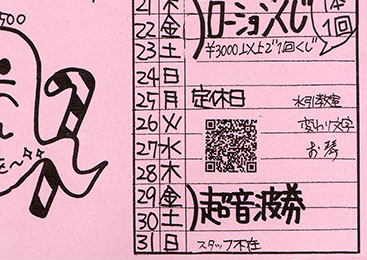 500
21 木
22 金 ローションくじ 1本 1回
23 土 ¥3000以上で1回くじ
24 日
25 月 定休日 水引教室
26 火 変わり文字
27 水 お琴
28 木
29 金 超音波券
30 土
31 日 スタッフ不在